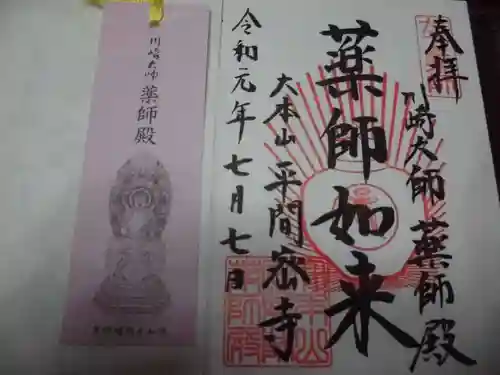 奉拝
川崎大師 薬師殿
薬師如来
大本山 平間密寺
令和元年七月七日
川崎大師
薬師殿